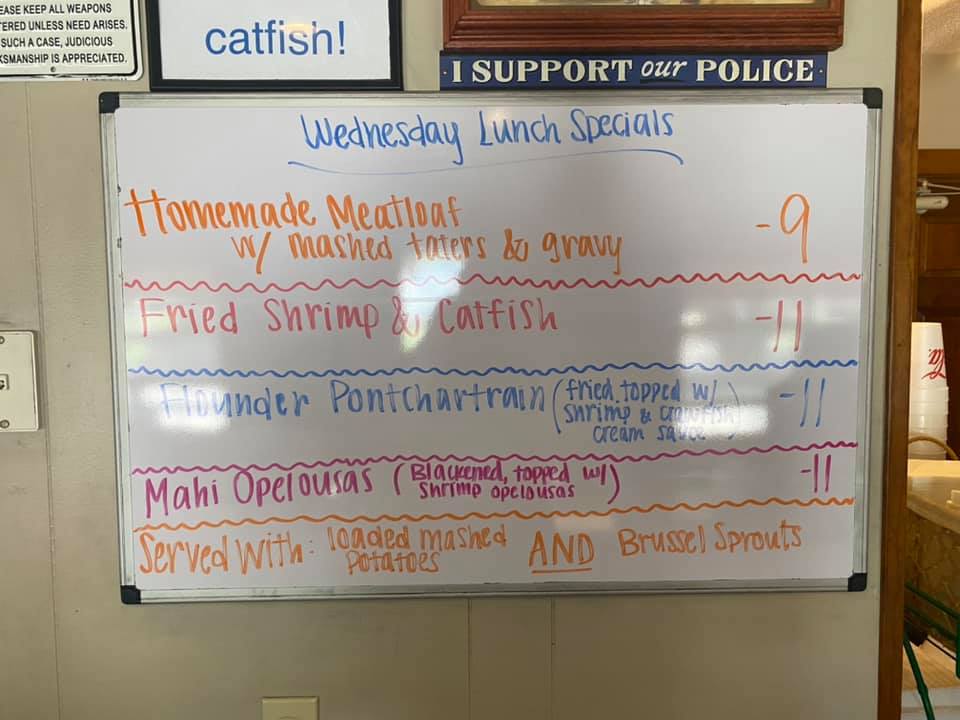 EASE KEEP ALL WEAPONS
TERED UNLESS NEED ARISES.
SUCH A CASE, JUDICIOUS
KSMANSHIP IS APPRECIATED.
catfish!
I SUPPORT our POLICE
Wednesday Lunch Specials
Homemade Meatloaf
w/ mashed taters & gravy -9
Fried Shrimp & Catfish -11
Flounder Pontchartrain (fried, topped w/
shrimp & crawfish
cream sauce) -11
Mahi Opelousas (Blackened, topped w/
Shrimp opelousas) -11
Served With: loaded mashed
potatoes AND Brussel Sprouts